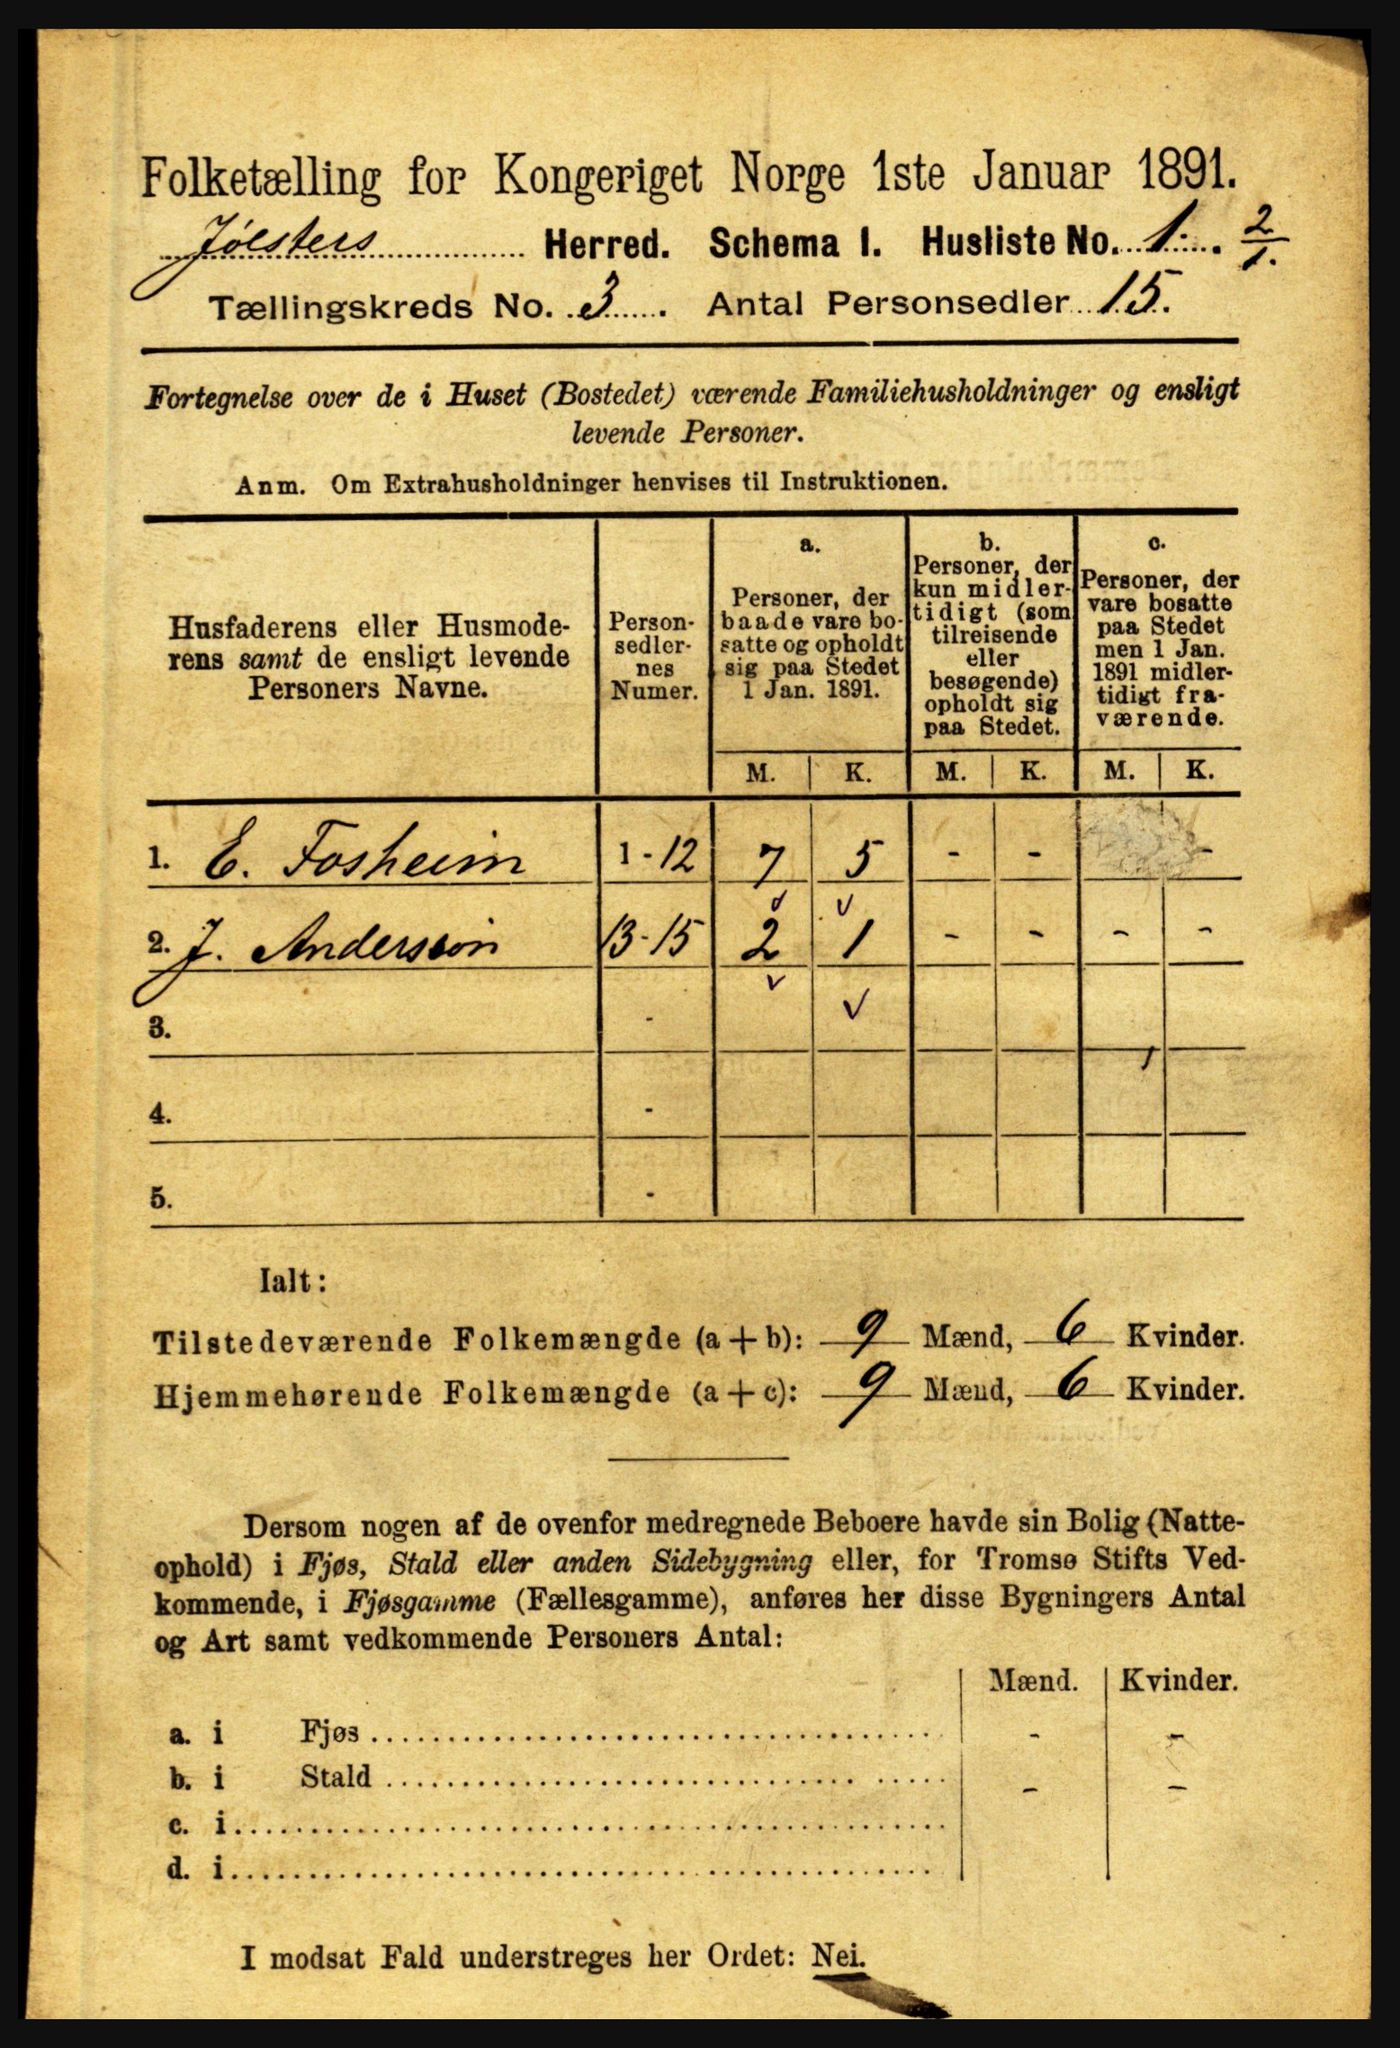 Folketælling for Kongeriget Norge 1ste Januar 1891.
Jølsters Herred. Schema I. Husliste No. 1. 2/1.
Tællingskreds No. 3. Antal Personsedler 15.
Fortegnelse over de i Huset (Bostedet) værende Familiehusholdninger og ensligt
levende Personer.
Anm. Om Extrahusholdninger henvises til Instruktionen.
Husfaderens eller Husmode-
rens samt de ensligt levende
Personers Navne.
Person-
sedler-
nes
Numer.
a.
Personer, der
baade vare bo-
satte og opholdt
sig paa Stedet
1 Jan. 1891.
b.
Personer, der
kun midler-
tidigt (som
tilreisende
eller
besøgende)
opholdt sig
paa Stedet.
c.
Personer, der
vare bosatte
paa Stedet
men 1 Jan.
1891 midler-
tidigt fra-
værende.
M. K. M. K. M. K.
1. E. Fosheim 1-12 7 5 - - -
2. J. Andersson 13-15 2 1 - - - -
3. -
4. -
5. -
Ialt:
Tilstedeværende Folkemængde (a+b): 9 Mænd, 6 Kvinder.
Hjemmehørende Folkemængde (a+c): 9 Mænd, 6 Kvinder.
Dersom nogen af de ovenfor medregnede Beboere havde sin Bolig (Natte-
ophold) i Fjøs, Stald eller anden Sidebygning eller, for Tromsø Stifts Ved-
kommende, i Fjøsgamme (Fællesgamme), anføres her disse Bygningers Antal
og Art samt vedkommende Personers Antal:
Mænd. Kvinder.
a. i Fjøs - -
b. i Stald - -
c. i
d. i
I modsat Fald understreges her Ordet: Nei.